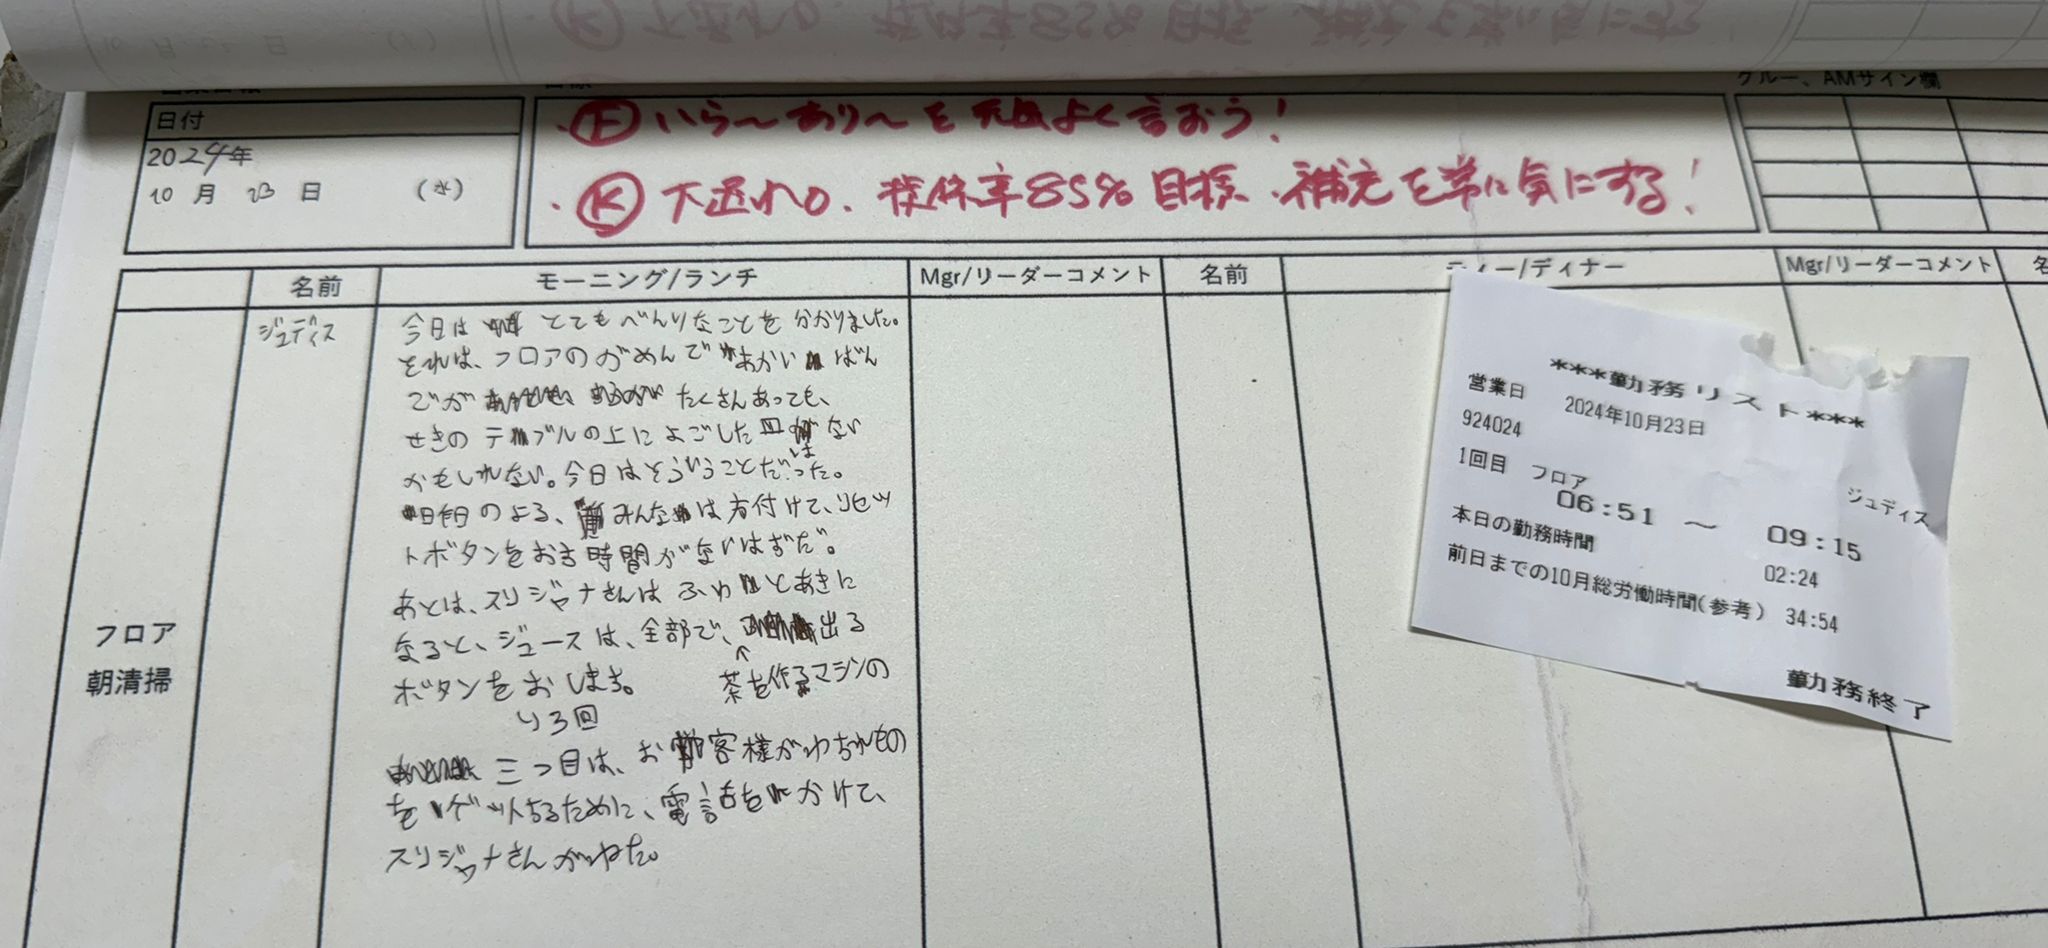 クルー、AMサイン欄
日付
2024年
10月23日 (水)
・Ⓕ いら〜あり〜を元気よく言おう!
・Ⓚ 下送れ0. 提供率85%目標、補充を常に気にする!
名前
モーニング/ランチ
Mgr/リーダーコメント
名前
ティー/ディナー
Mgr/リーダーコメント
名
フロア
朝清掃
ジュディス
今日は とてもべんりなことを分かりました。
それは、フロアのがめんで あかい ばん
ごが たくさんあっても、
せきの テーブルの上によごした皿が ない
かもしれない。今日はそういうことだった。
昨日のよる、 みんな は片付けて、リセッ
トボタンをおす時間がないはずだ。
あとは、スリジャナさんは ふわ とあきに
なると、ジュースは、全部で、 出る
茶を作るマシンの
ボタンをおします。
り3回
三つ目は、お 客様がわすれもの
を ゲットするために、電話を かけて、
スリジャナさんが
***勤務リスト***
営業日 2024年10月23日
924024 ジュディス
1回目 フロア
06:51 〜 09:15
本日の勤務時間 02:24
前日までの10月総労働時間(参考) 34:54
勤務終了